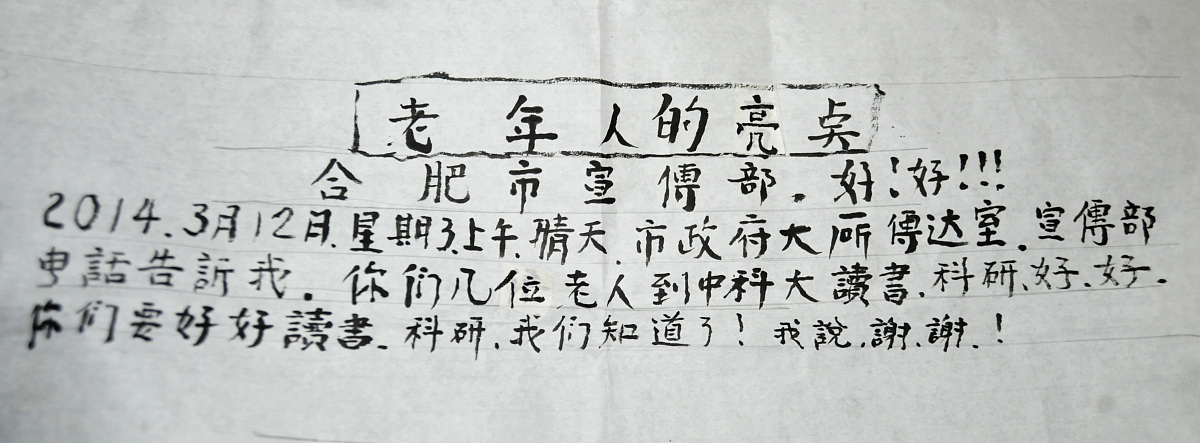 老年人的亮点
合肥市宣傳部.好!好!!!
2014.3月12日.星期3上午.晴天.市政府大厅傳达室.宣傳部
电話告訴我.你们几位老人到中科大讀書.科研.好.好.
你们要好好讀書.科研.我们知道了!我說.謝.謝.!